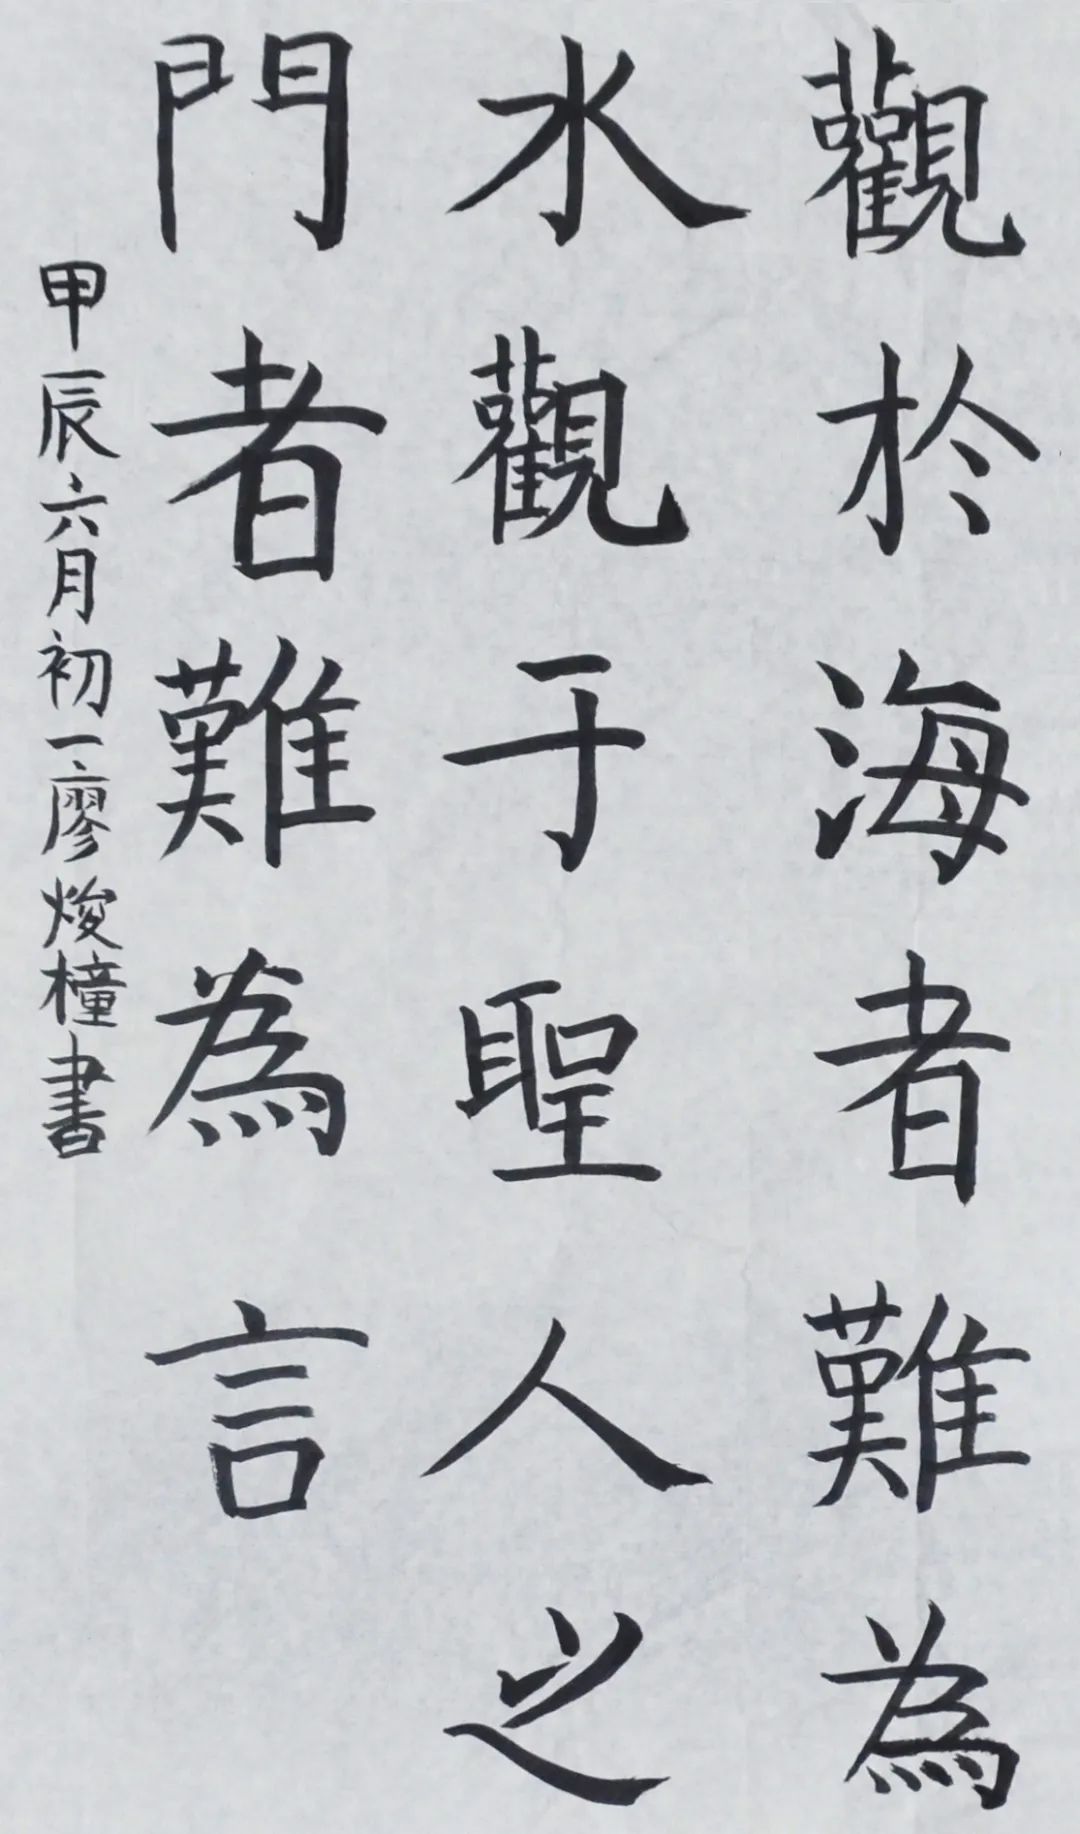 觀於海者難為
水觀于聖人之
門者難為言
甲辰六月初一廖焌橦書